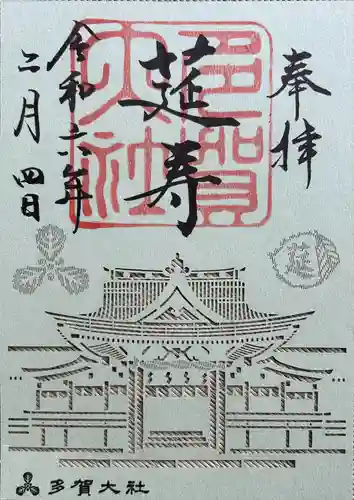 奉拝
莚寿
多賀大社
令和六年
二月四日
莚
多賀大社